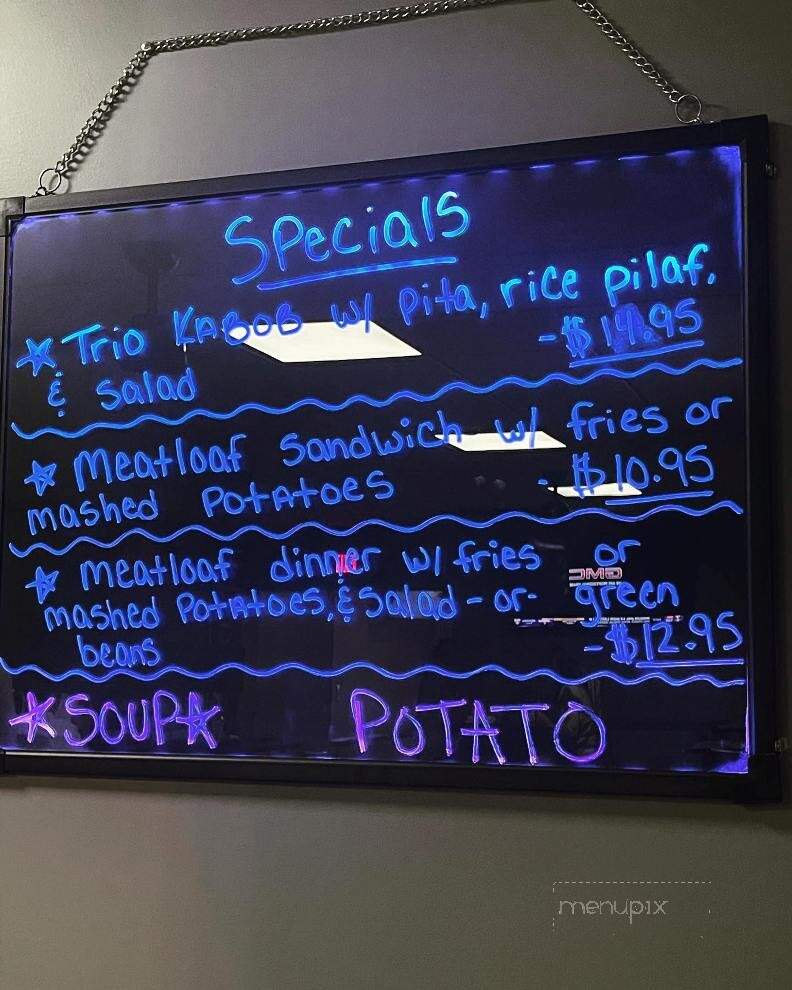 Specials
☆ Trio KABOB w/ pita, rice pilaf.
& Salad -
☆ Meatloaf Sandwich w/ fries or
mashed POTATOES - $10.95
☆ Meatloaf dinner w/ fries or
mashed POTATOES, & Salad - or - green
beans - $12.95
☆SOUP☆ POTATO
GMC
menupix